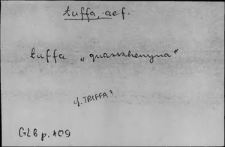 tuffa, aef.
tuffa „quasshenyna"
cf. TRIFFA?
GLB p. 109